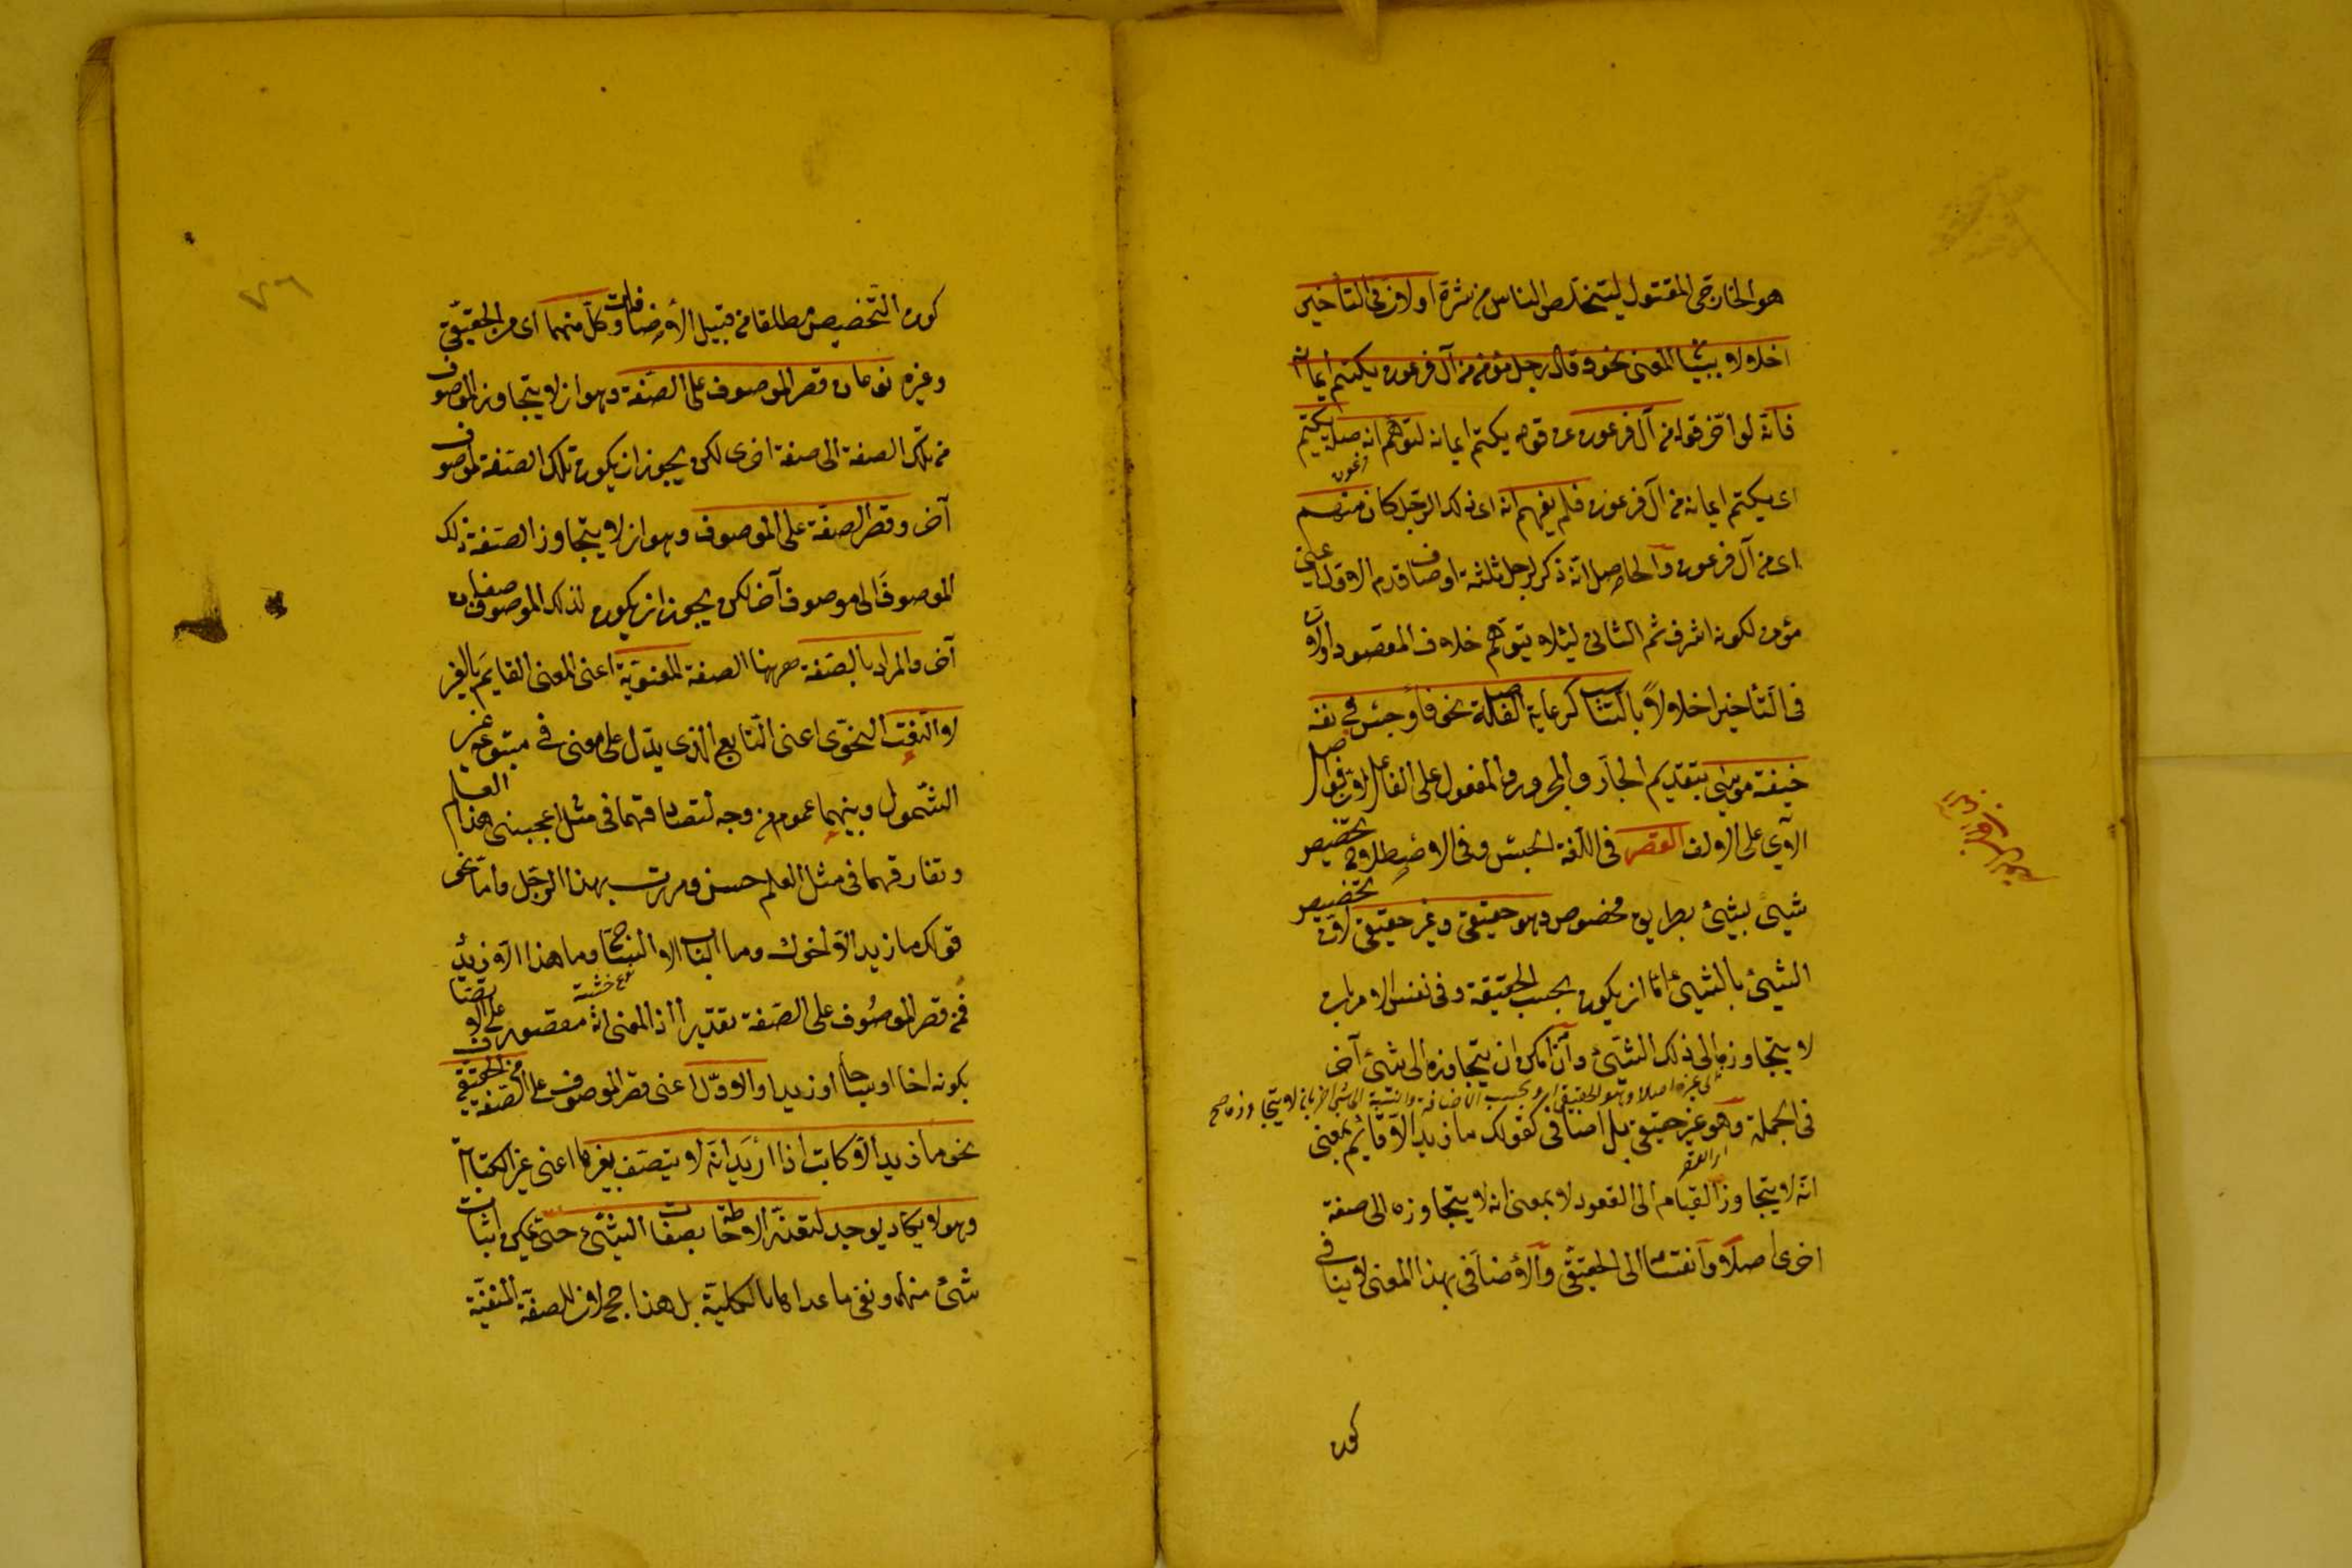 هو الخارجى المقتول ليتخلص الناس من شره اولان فى التأخير
اخلالا ببيان المعنى نحو وقال رجل مؤمن من آل فرعون يكتم ايمانه
فانه لو اخر قوله من آل فرعون عن قوله يكتم ايمانه لتوهم انه صلة يكتم
اى يكتم ايمانه من آل فرعون فلم يفهم انه اى ذلك الرجل كان منهم
اى من آل فرعون والحاصل انه ذكر لرجل ثلثة اوصاف قدم الاول اعنى
مؤمن لكونه اشرف ثم الثانى لئلا يتوهم خلاف المقصود اولان
فى التأخير اخلالا بالتناسب كرعاية الفاصلة نحو فأوجس فى نفسه
خيفة موسى بتقديم الجار والمجرور والمفعول على الفاعل لان فواصل
الآى على الالف القصر فى اللغة الحبس وفى الاصطلاح تخصيص
شيئ بشيئ بطريق مخصوص وهو حقيقى وغير حقيقى لان تخصيص
الشيئ بالشيئ اما ان يكون بحسب الحقيقة وفى نفس الامر بان
لا يتجاوزه الى ذلك الشيئ وان امكن ان يتجاوزه الى شيئ آخر
الى غيره اصلا وهو الحقيقى او بحسب الاضافة والنسبة الى شيئ آخر بان لا يتجاوزه صح
فى الجملة وهو غير حقيقى بل اضافى كقولك ما زيد الا قائم بمعنى
انه لا يتجاوز القيام الى القعود لا بمعنى انه لا يتجاوزه الى صفة
اخرى اصلا وانقسامه الى الحقيقى والاضافى بهذا المعنى لا ينافى
كون
كون التخصيص مطلقا من قبيل الاضافات وكل منهما اى من الحقيقى
وغيره نوعان قصر الموصوف على الصفة وهو ان لا يتجاوز الموصوف
من تلك الصفة الى صفة اخرى لكن يجوز ان يكون تلك الصفة لموصوف
آخر وقصر الصفة على الموصوف وهو ان لا يتجاوز الصفة ذلك
الموصوف الى موصوف آخر لكن يجوز ان يكون لذلك الموصوف صفات
آخر والمراد بالصفة ههنا الصفة المعنوية اعنى المعنى القايم بالغير
لا النعت النحوى اعنى التابع الذى يدل على معنى فى متبوعه غير
الشمول وبينهما عموم من وجه لتصادقهما فى مثل اعجبنى هذا العلم
وتفارقهما فى مثل العلم حسن ومررت بهذا الرجل واما نحو
قولك ما زيد الا اخوك وما الباب الا الساج وما هذا الا زيد
فمن قصر الموصوف على الصفة تقديرا اذ المعنى انه مقصور على الاتصاف
بكونه اخا او ساجا او زيدا والاول اعنى قصر الموصوف على الصفة من الحقيقى
نحو ما زيد الا كاتب اذا اريد انه لا يتصف بغيرها اعنى غير الكتابة
وهو لا يكاد يوجد لتعذر الاحاطة بصفات الشيئ حتى يمكن اثبات
شيئ منها ونفى ما عداها بالكلية بل هذا محال لان للصفة المنفية